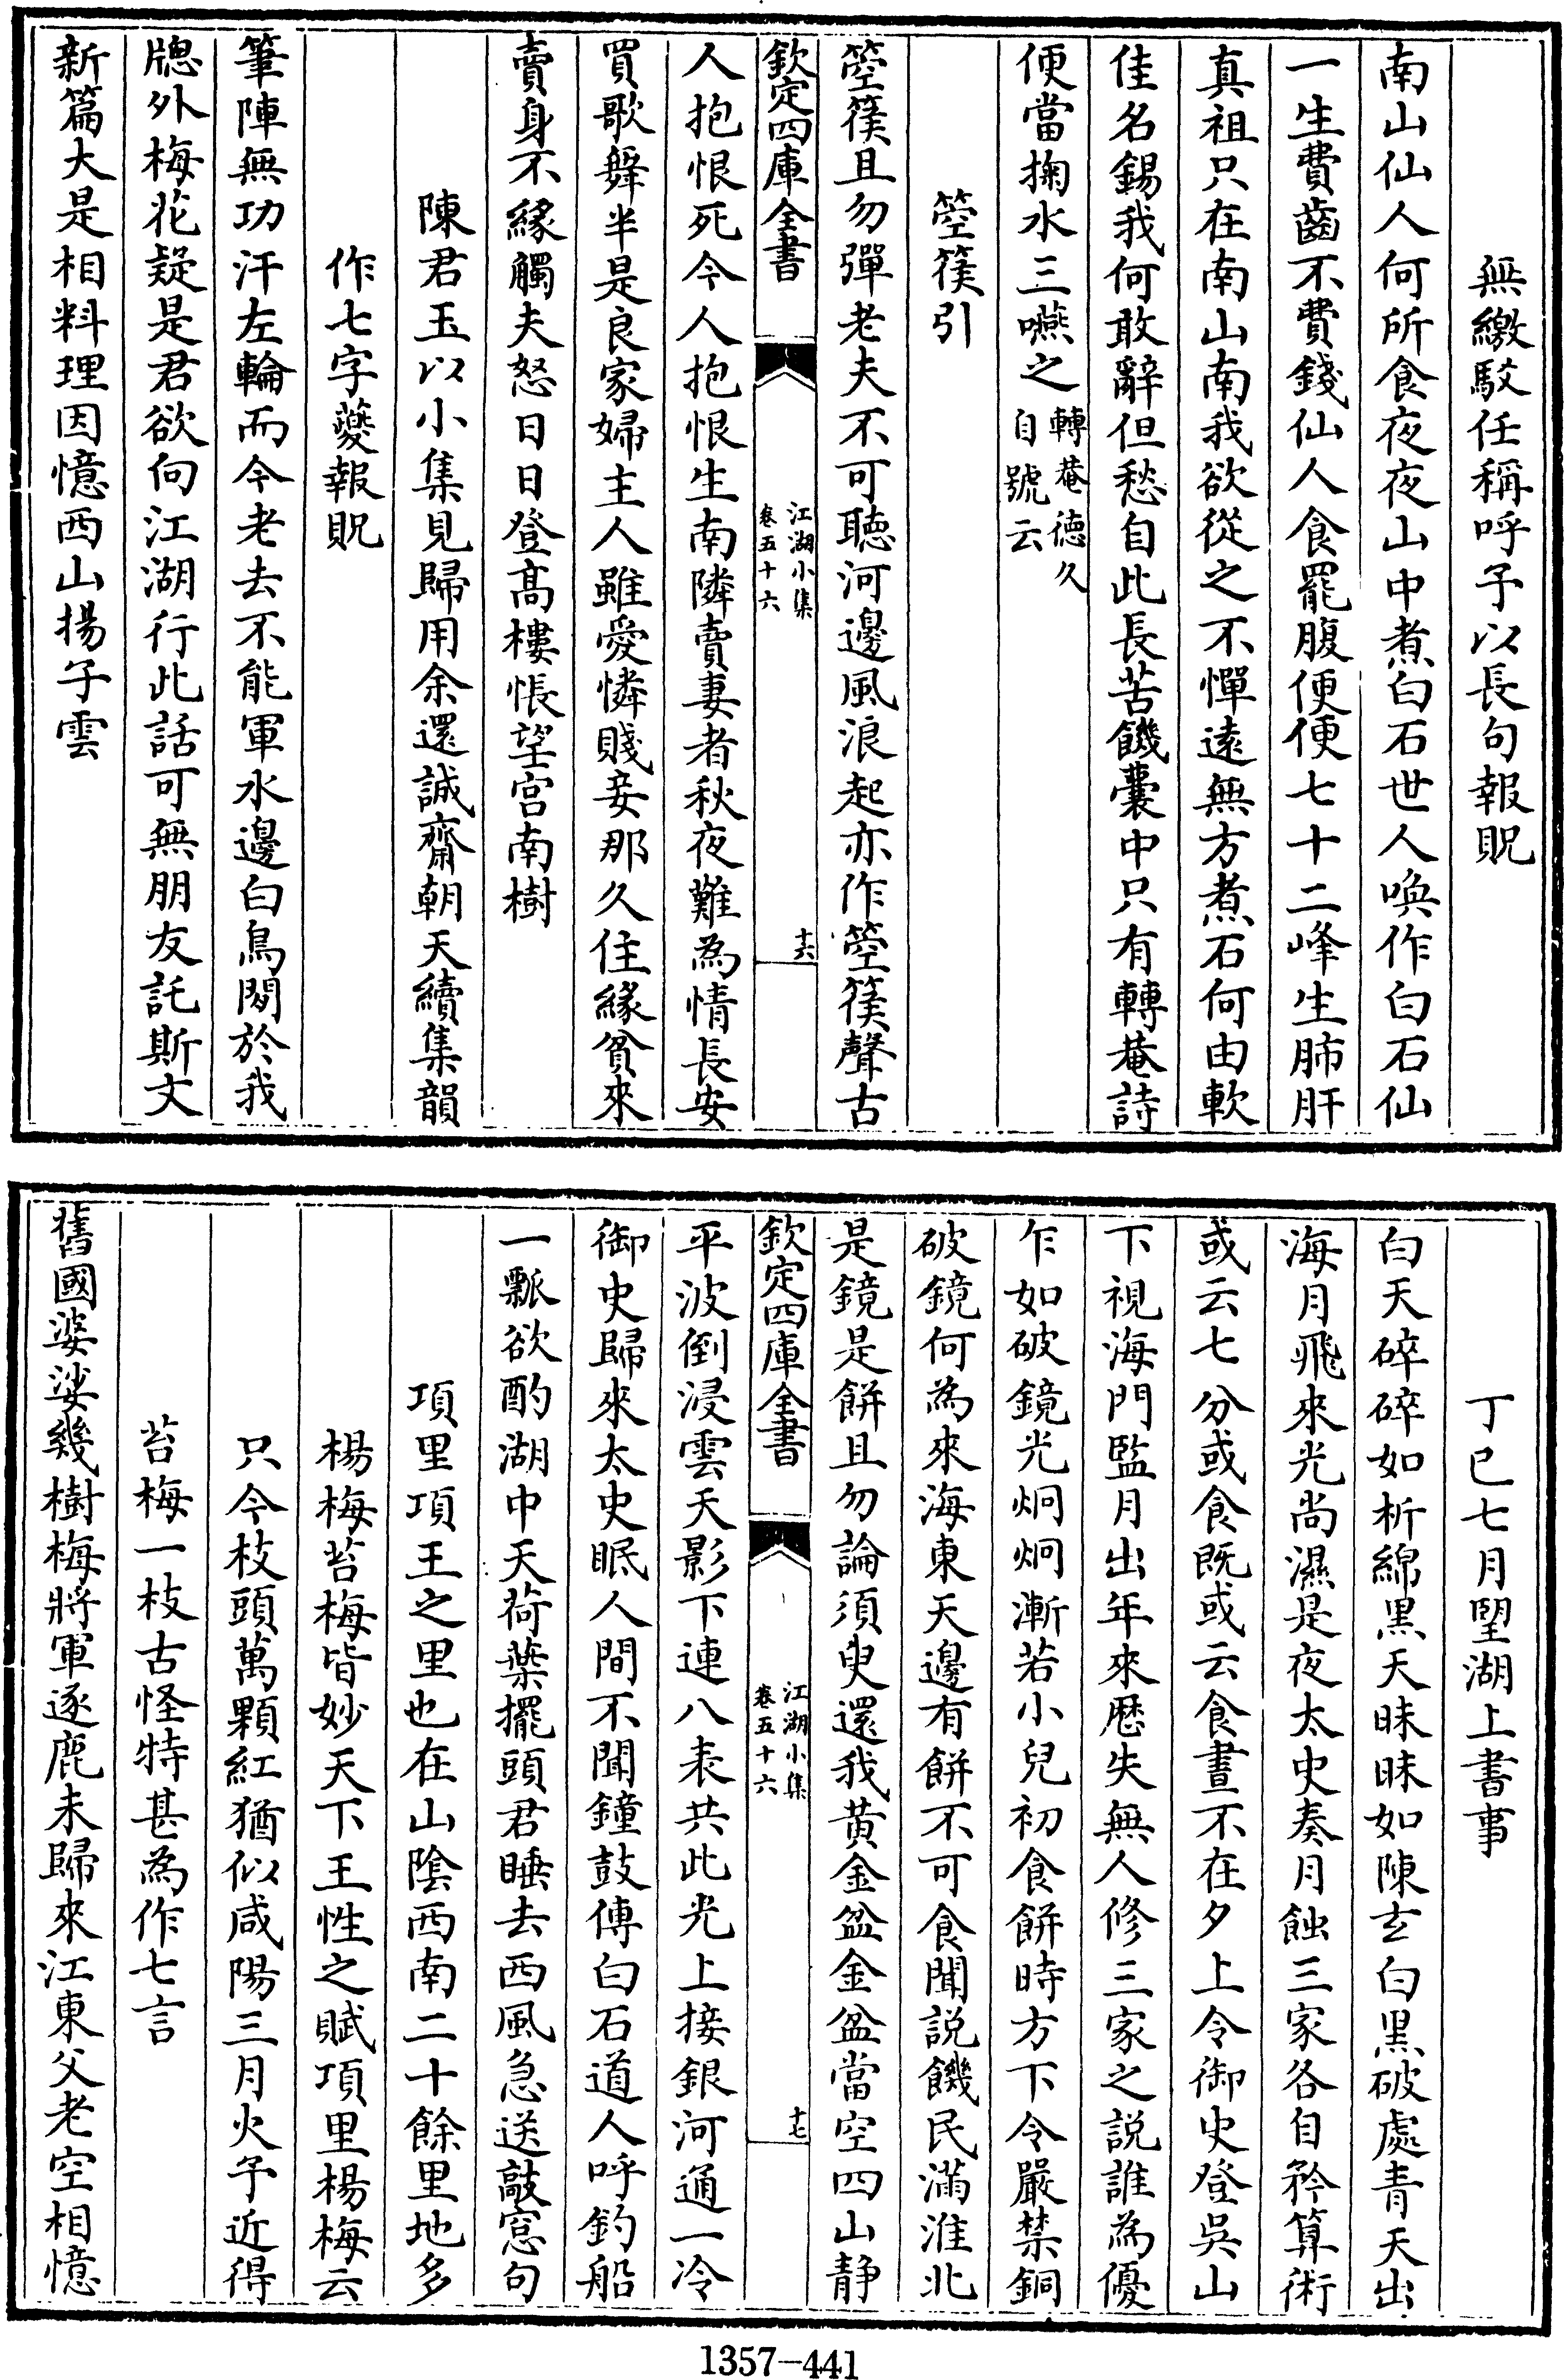 無繳駮任稱呼予以長句報貺
南山仙人何所食夜夜山中煮白石世人喚作白石仙
一生費齒不費錢仙人食罷腹便便七十二峰生肺肝
真祖只在南山南我欲從之不憚遠無方煮石何由軟
佳名錫我何敢辭但愁自此長苦饑囊中只有轉菴詩
便當掬水三嚥之轉菴德久
自號云
箜篌引
箜篌且勿彈老夫不可聽河邊風浪起亦作箜篌聲古
欽定四庫全書
江湖小集
卷五十六
十六
人抱恨死今人抱恨生南隣賣妻者秋夜難為情長安
買歌舞半是良家婦主人雖愛憐賤妾那久住緣貧來
賣身不緣觸夫怒日日登髙樓悵望宫南樹
陳君玉以小集見歸用余還誠齋朝天續集韻
作七字夔報貺
筆陣無功汗左輪而今老去不能軍水邊白鳥閒於我
牕外梅花疑是君欲向江湖行此話可無朋友託斯文
新篇大是相料理因憶西山揚子雲
丁巳七月望湖上書事
白天碎碎如析綿黑天昧昧如陳玄白黑破處青天出
海月飛來光尚濕是夜太史奏月蝕三家各自矜算術
或云七分或食既或云食晝不在夕上令御史登吳山
下視海門監月出年來歴失無人修三家之說誰為優
乍如破鏡光炯炯漸若小兒初食餅時方下令嚴禁銅
破鏡何為來海東天邊有餅不可食聞說饑民滿淮北
是鏡是餅且勿論須臾還我黄金盆金盆當空四山静
欽定四庫全書
江湖小集
卷五十六
十七
平波倒浸雲天影下連八表共此光上接銀河通一冷
御史歸來太史眠人間不聞鐘鼓傳白石道人呼釣船
一瓢欲酌湖中天荷葉擺頭君睡去西風急送敲窓句
項里項王之里也在山陰西南二十餘里地多
楊梅苔梅皆妙天下王性之賦項里楊梅云
只今枝頭萬顆紅猶似咸陽三月火予近得
苔梅一枝古怪特甚為作七言
舊國婆娑幾樹梅將軍逐鹿未歸來江東父老空相憶
1357-441